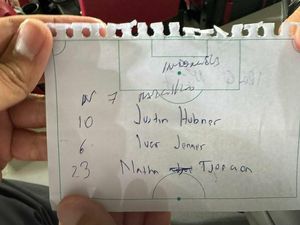 INDONESIA
10 Justin Hubner
6 Ivar Jenner
23 Nathan Tjoe a on